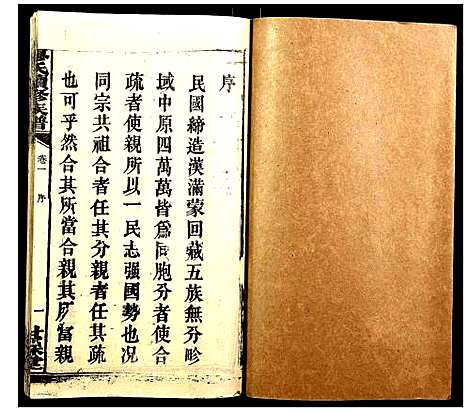 序
民國締造漢滿蒙回藏五族無分畛
域中原四萬萬皆爲同胞分者使合
疏者使親所以一民志强國勢也况
同宗共祖合者任其分親者任其疏
也可乎然合其所當合親其所當親
氏續修族譜
卷一
序
一